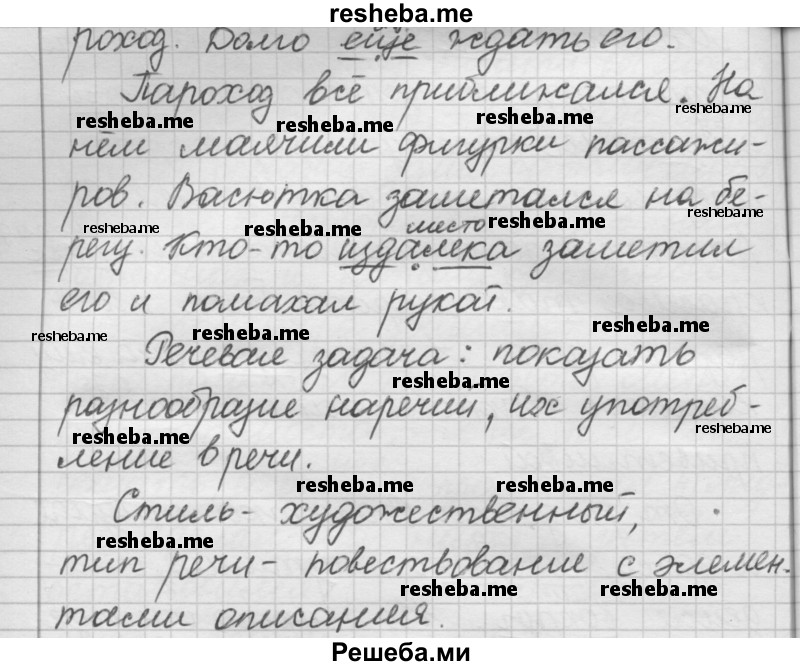 resheba.me
роход. Долго ещё ждать его.
Пароход всё приближался. На
resheba.me resheba.me resheba.me resheba.me
нём маячили фигурки пассажи-
ров. Васютка заметался на бе-
resheba.me resheba.me место resheba.me resheba.me
регу. Кто-то издалека заметил
его и помахал рукой.
resheba.me resheba.me resheba.me
Речевая задача: показать
resheba.me
разнообразие наречий, их употреб-
resheba.me resheba.me
ление в речи.
resheba.me resheba.me
Стиль- художественный,
resheba.me
тип речи- повествование с элемен-
resheba.me resheba.me
тами описания.
Решеба.ми